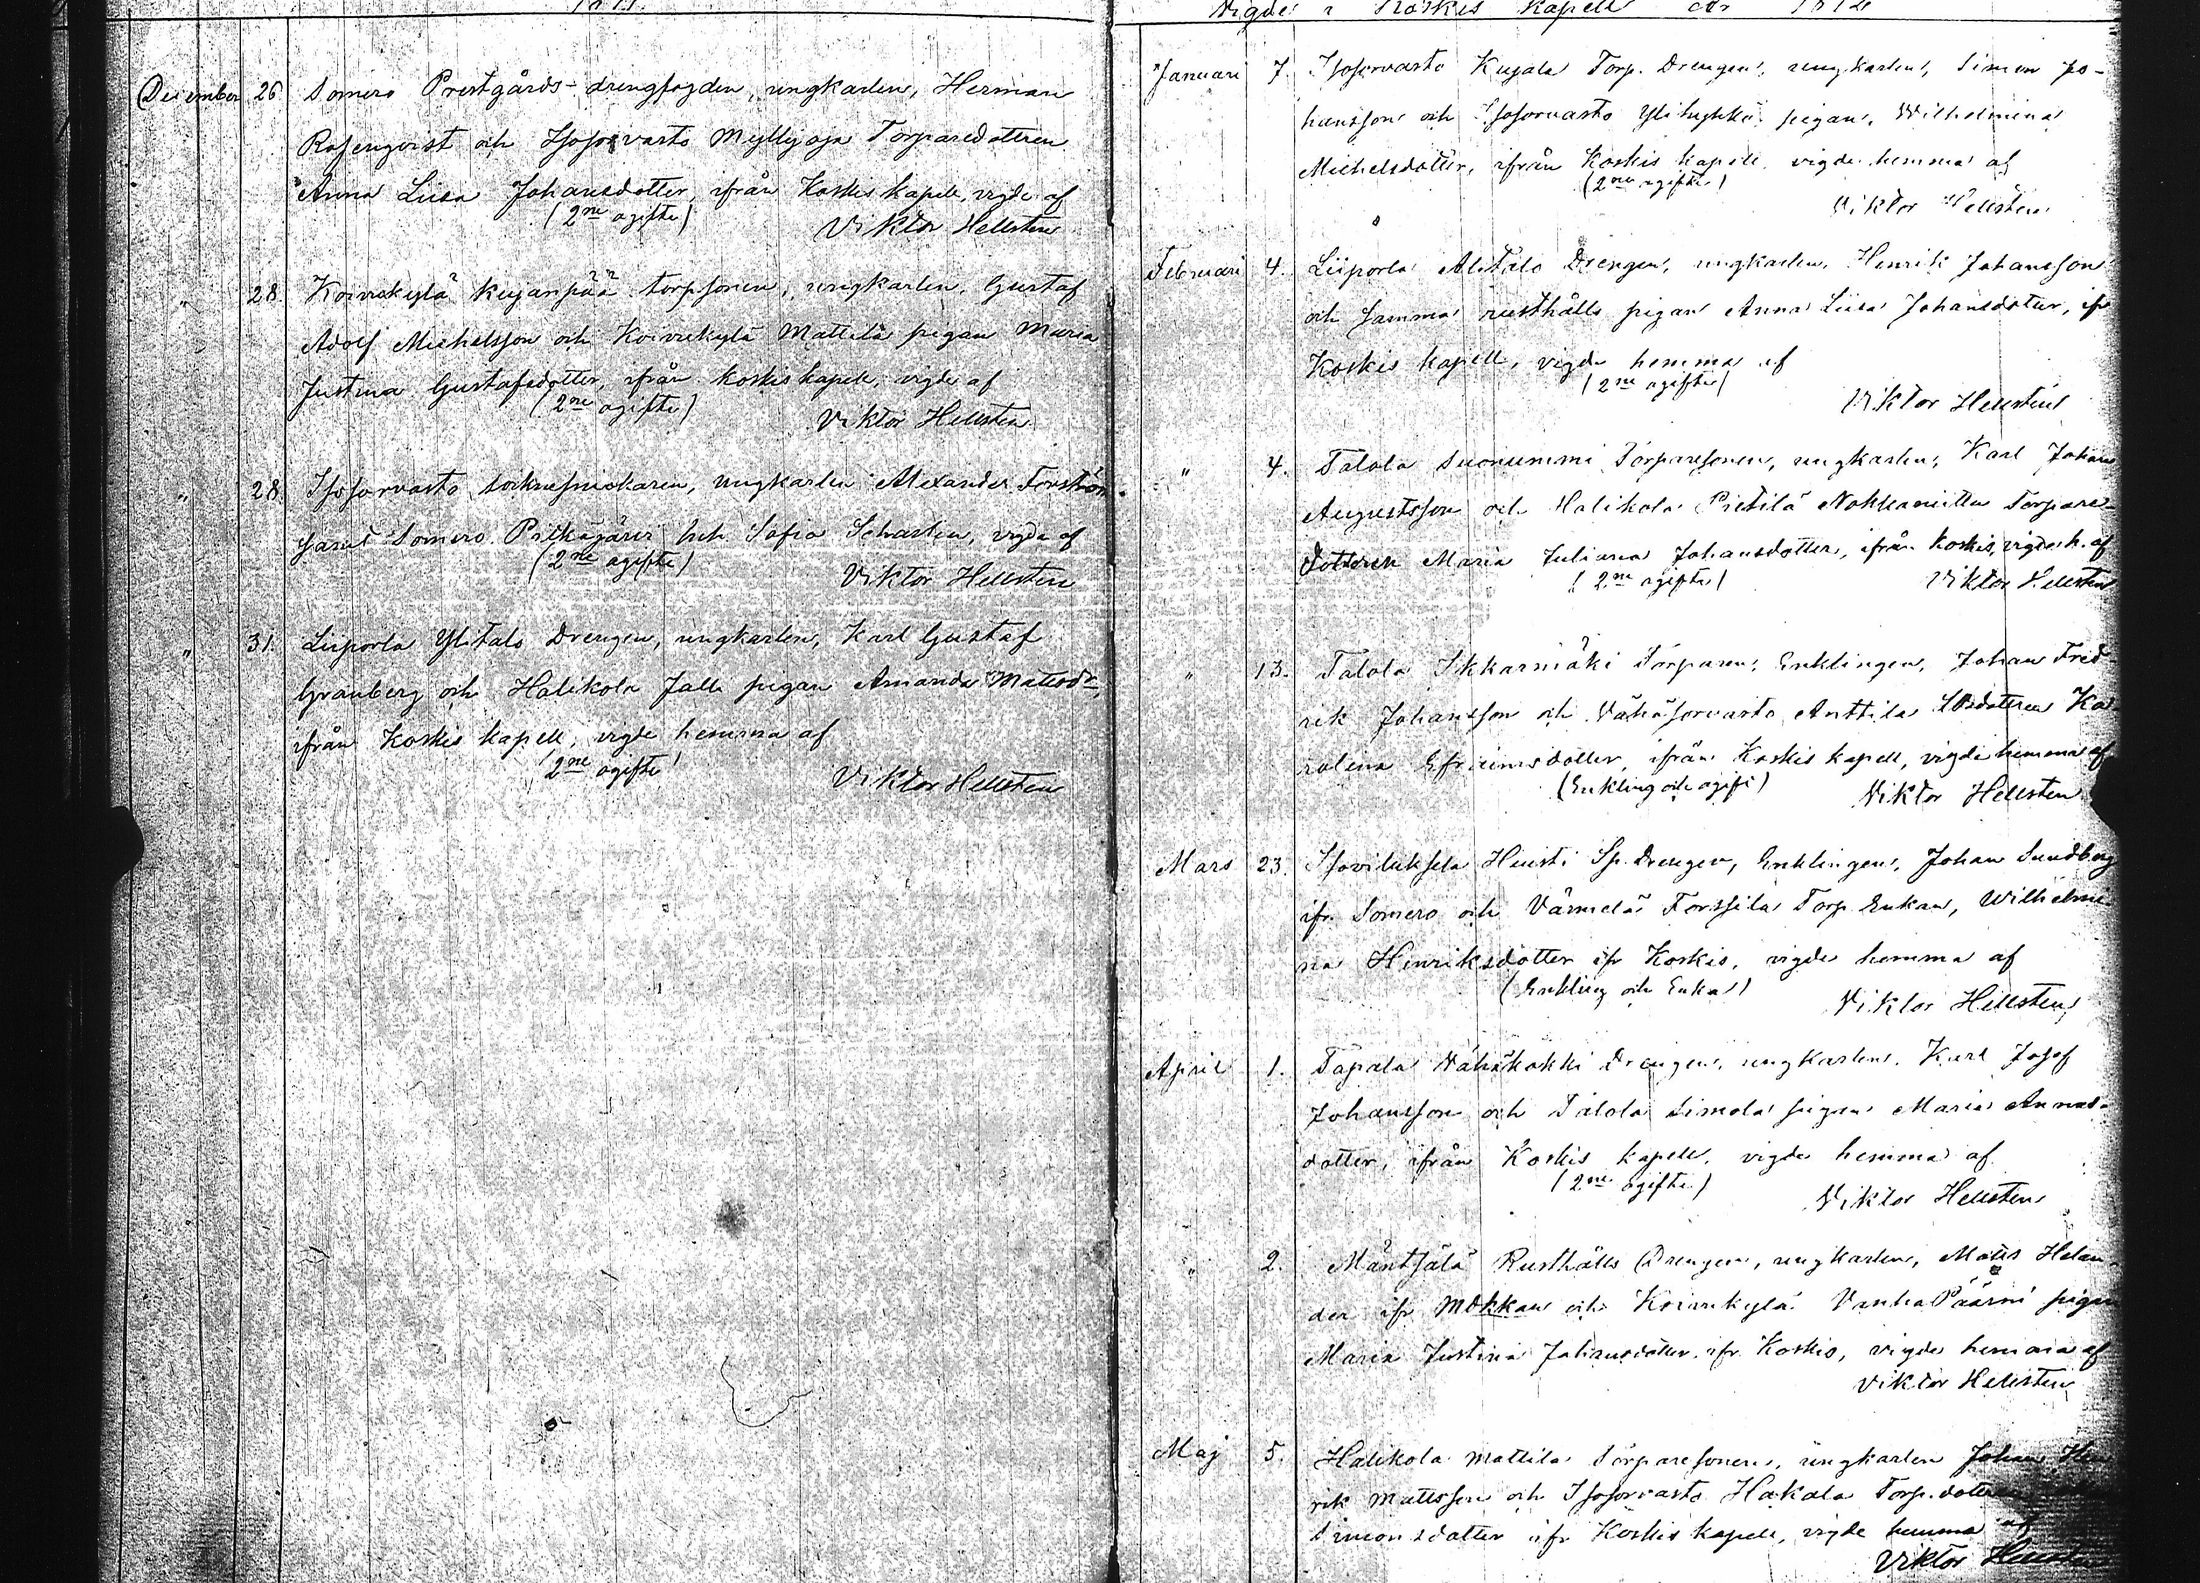 December 26. Somero Prestgårds-drengfogden, ungkarlen, Herman
Rosenqvist och Isosorvasto Myllyoja Torparedottren
Anna Liisa Johansdotter, ifrån Koskis kapell, vigde af
(2ne ogifte)
Viktor Hellsten
" 28. Koivukylä Kujanpää torpsonen, ungkarlen, Gustaf
Adolf Michelsson och Koivukylä Mattila pigan Maria
Justina Gustafsdotter, ifrån Koskis kapell, vigde af
(2ne ogifte)
Viktor Hellsten
" 28. Isosorvasto socknesnickaren, ungkarlen Alexander Forström
samt Somero Pitkäjärvi Sofia vigde af
(2ne ogifte)
Viktor Hellsten
" 31. Liiporla Ylitalo Drengen, ungkarlen, Karl Gustaf
Granberg och Halikola Jalli pigan Amanda Matsdr,
ifrån Koskis kapell, vigde hemma af
(2ne ogifte)
Viktor Hellsten
Vigde i Koskis kapell år 1872
Januari 7. Isosorvasto Kujala Torp. Drengen, ungkarlen, Simon Jo-
hansson och Isosorvasto pigan, Wilhelmina
Michelsdotter, ifrån Koskis kapell vigde hemma af
(2ne ogifte)
Viktor Hellsten
Februari 4. Liiporla Alitalo Drengen, ungkarlen, Henrik Johansson
och samma rusthålls pigan Anna Liisa Johansdotter, ifr
Koskis kapell, vigde hemma af
(2ne ogifte)
Viktor Hellsten
" 4. Talola Suonummi Torparesonen, ungkarlen, Karl Johan
Augustsson och Halikola Pietilä Torpare-
dottren Maria Juliana Johansdotter, ifrån Koskis, vigde h. af
(2ne ogifte)
Viktor Hellsten
" 13. Talola Ikkarmäki Torparen, Enklingen, Johan Fred-
rik Johansson och Vähäsorvasto Anttila Ka-
rolina Efraimsdotter, ifrån Koskis kapell, vigde hemma af
(Enkling och ogift)
Viktor Hellsten
Mars 23. Isoviluksela Heusti Sp. Drengen, Enklingen, Johan Sundberg
ifr. Somero och Värmelä Forssila Torp Enkan, Wilhelmi-
na Henriksdotter ifr Koskis, vigde hemma af
(Enkling och Enka)
Viktor Hellsten
April 1. Tapala Vähäkokki Drengen, ungkarlen, Karl Josef
Johansson och Talola Simola pigan Maria Annas-
dotter, ifrån Koskis kapell, vigde hemma af
(2ne ogifte)
Viktor Hellsten
" 2. Mäntsälä Rusthålls Drengen, ungkarlen, Matts Helan-
der ifr och Koivukylä VanhaPäärni pigan
Maria Justina Johansdotter ifr Koskis, vigde hemma af
Viktor Hellsten
Maj 5. Halikola Mattila Torparesonen, ungkarlen Johan Hen-
rik Mattsson och Isosorvasto Hakala Torp. dottren
Simonsdotter ifr Koskis kapell, vigde hemma af
Viktor Hellsten